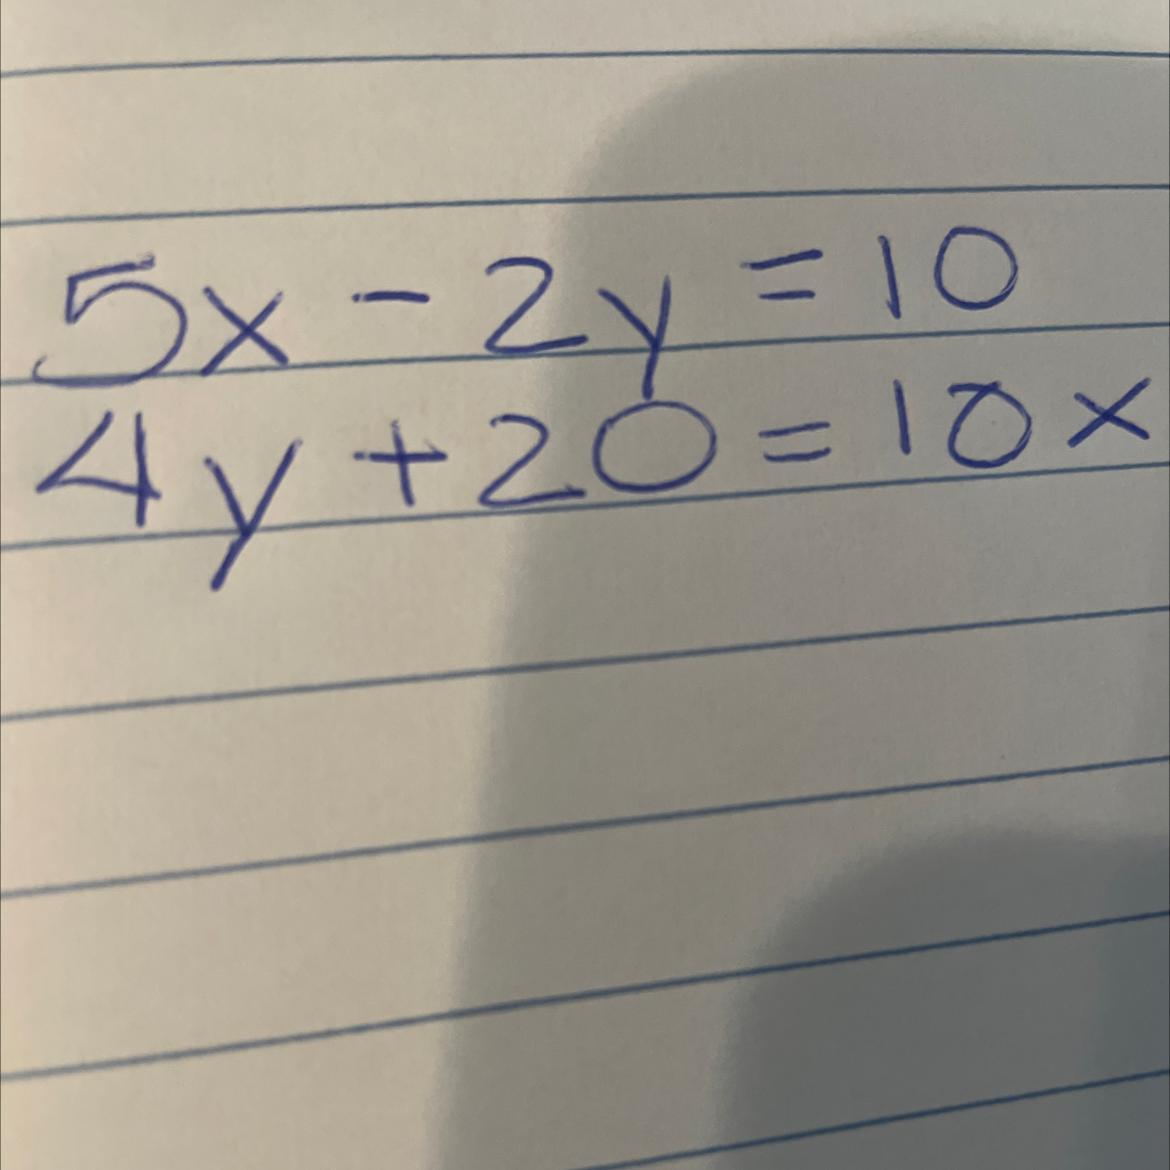 5x - 2y = 10
4y + 20 = 10x